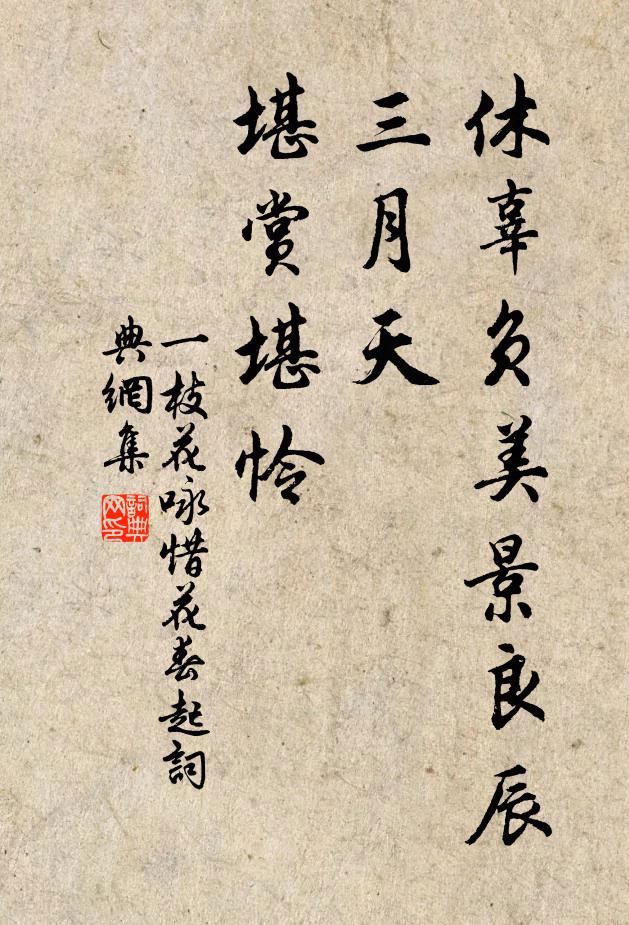 休辜负美景良辰
三月天
堪賞堪怜
一枝花咏惜花春起詞
典網集
詞典網印